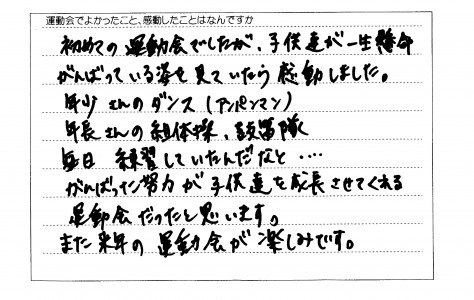 運動会でよかったこと、感動したことはなんですか
初めての運動会でしたが、子供達が一生懸命
がんばっている姿を見ていたら感動しました。
年少さんのダンス(アンパンマン)
年長さんの組体操、鼓笛隊
毎日 練習していたんだなと····
がんばった努力が子供達を成長させてくれる
運動会だったと思います。
また来年の運動会が楽しみです。